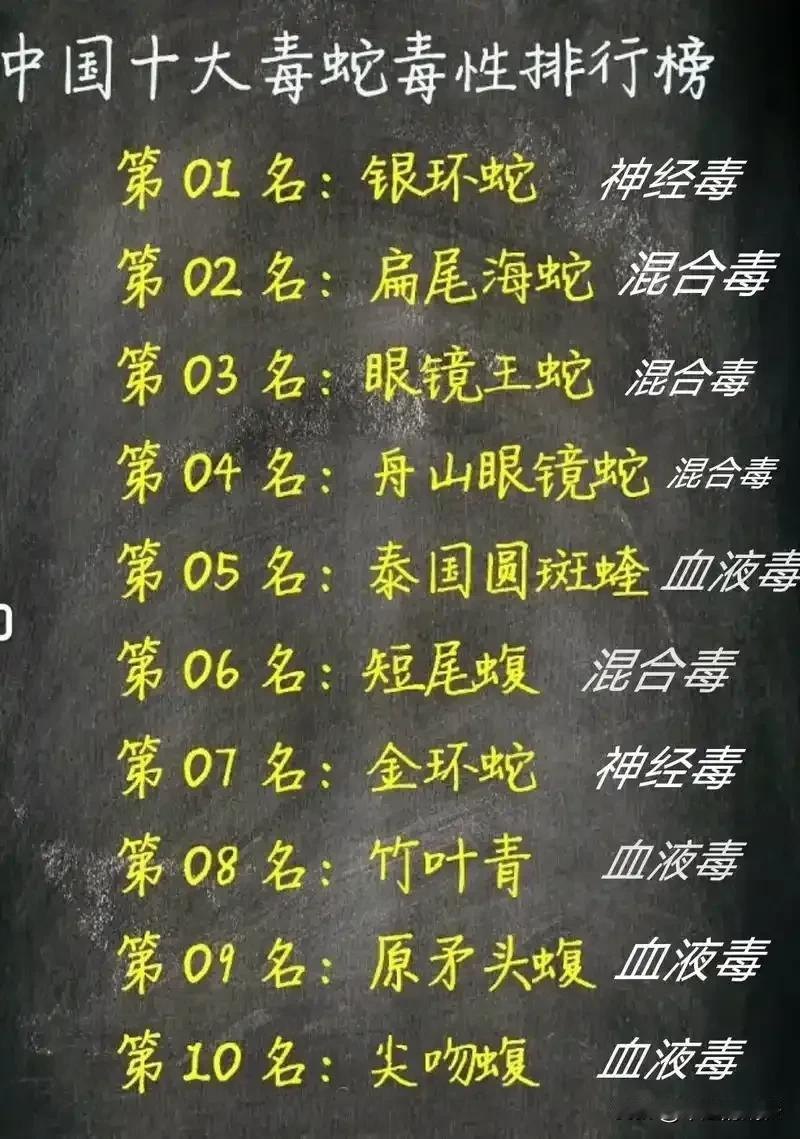 中国十大毒蛇毒性排行榜
第01名：银环蛇 神经毒
第02名：扁尾海蛇 混合毒
第03名：眼镜王蛇 混合毒
第04名：舟山眼镜蛇 混合毒
第05名：泰国圆斑蝰 血液毒
第06名：短尾蝮 混合毒
第07名：金环蛇 神经毒
第08名：竹叶青 血液毒
第09名：原矛头蝮 血液毒
第10名：尖吻蝮 血液毒